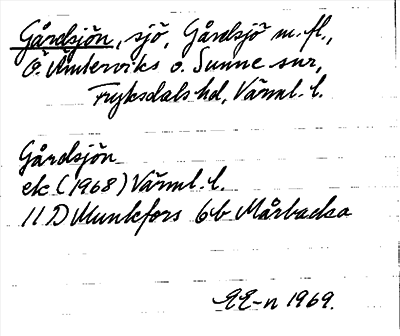 Gårdsjön, sjö, Gårdsjö m. fl.,
Ö. Ämterviks o. Sunne snr,
Fryksdals hd, Värml. l.
Gårdsjön
ek. (1968) Värml. l.
11 D Munkfors 6b Mårbacka
EE-n 1969.